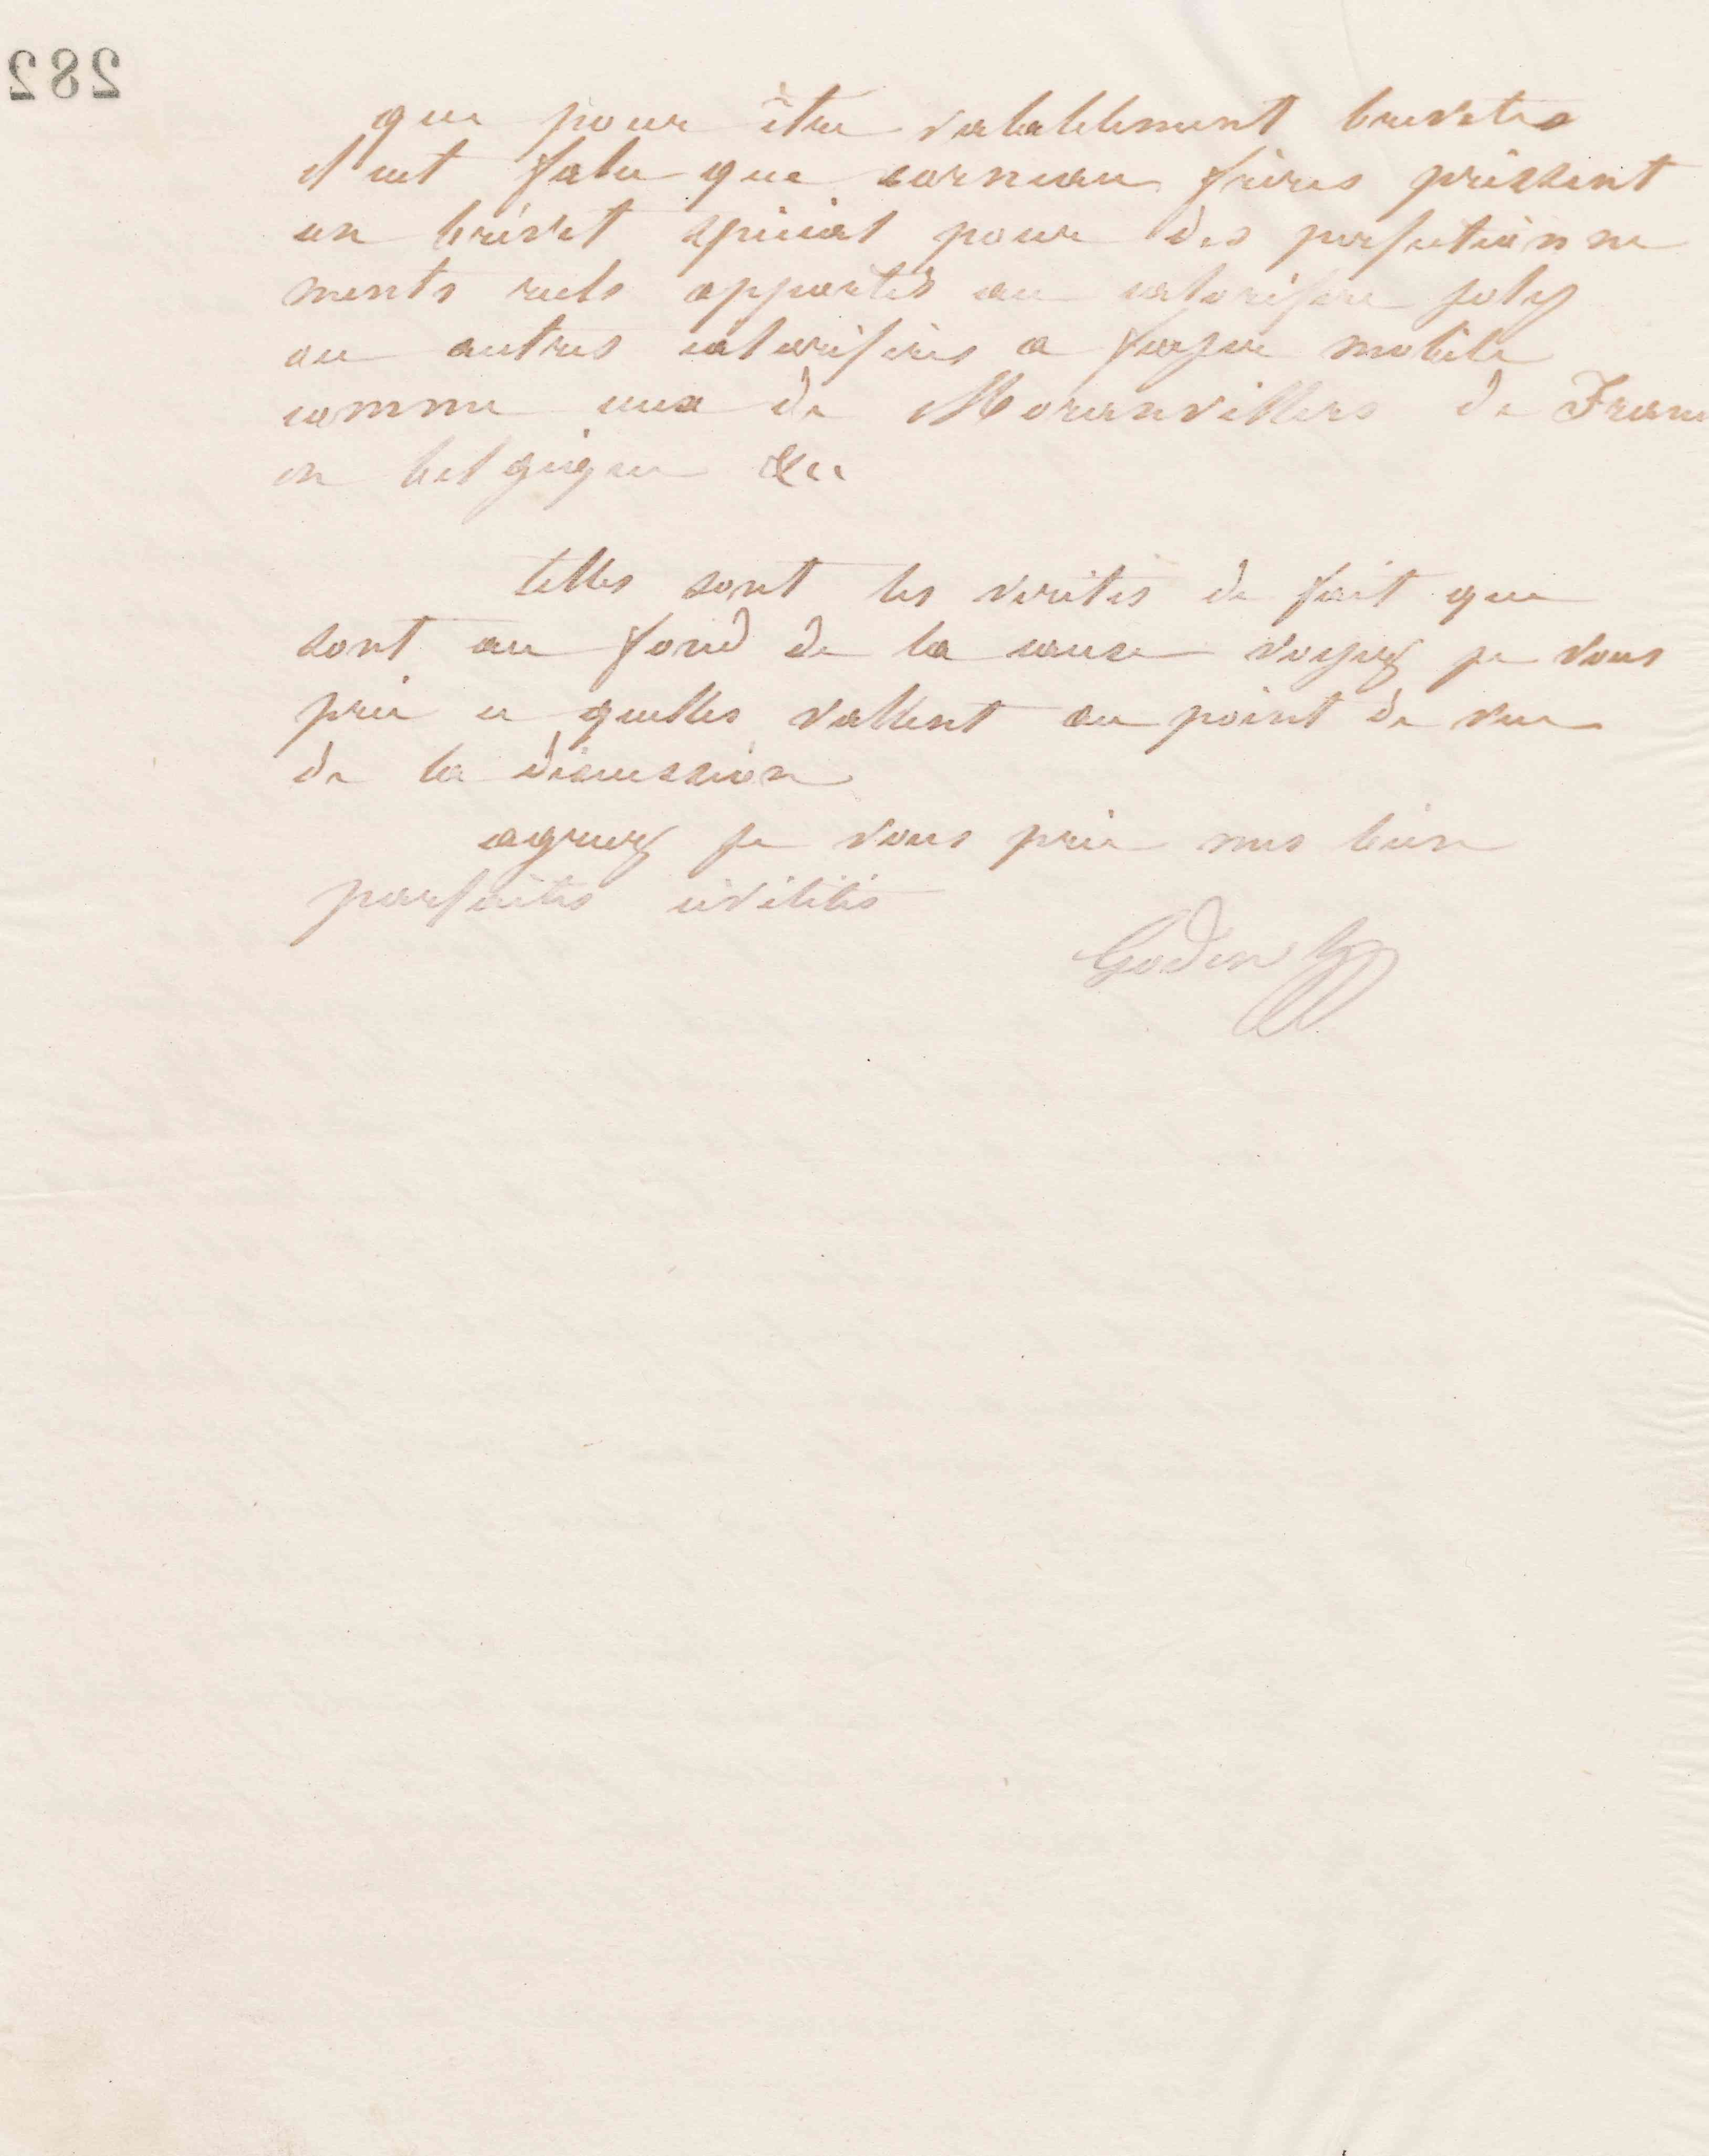 282
que pour être valablement brevetes
il eut falu que corneau frères prissent
un brévet spécial pour des perfectionne
ments reels apportés au calorifere joly
ou autres caloriferes a foyer mobile
comme ceux de Moranvillers de Franc
en belgique &c
telles sont les verités de fait que
sont au fond de la cause voyez je vous
prie ce quelles vallent au point de vue
de la discussion
agreez je vous prie mes bien
parfaites civilités
Godin